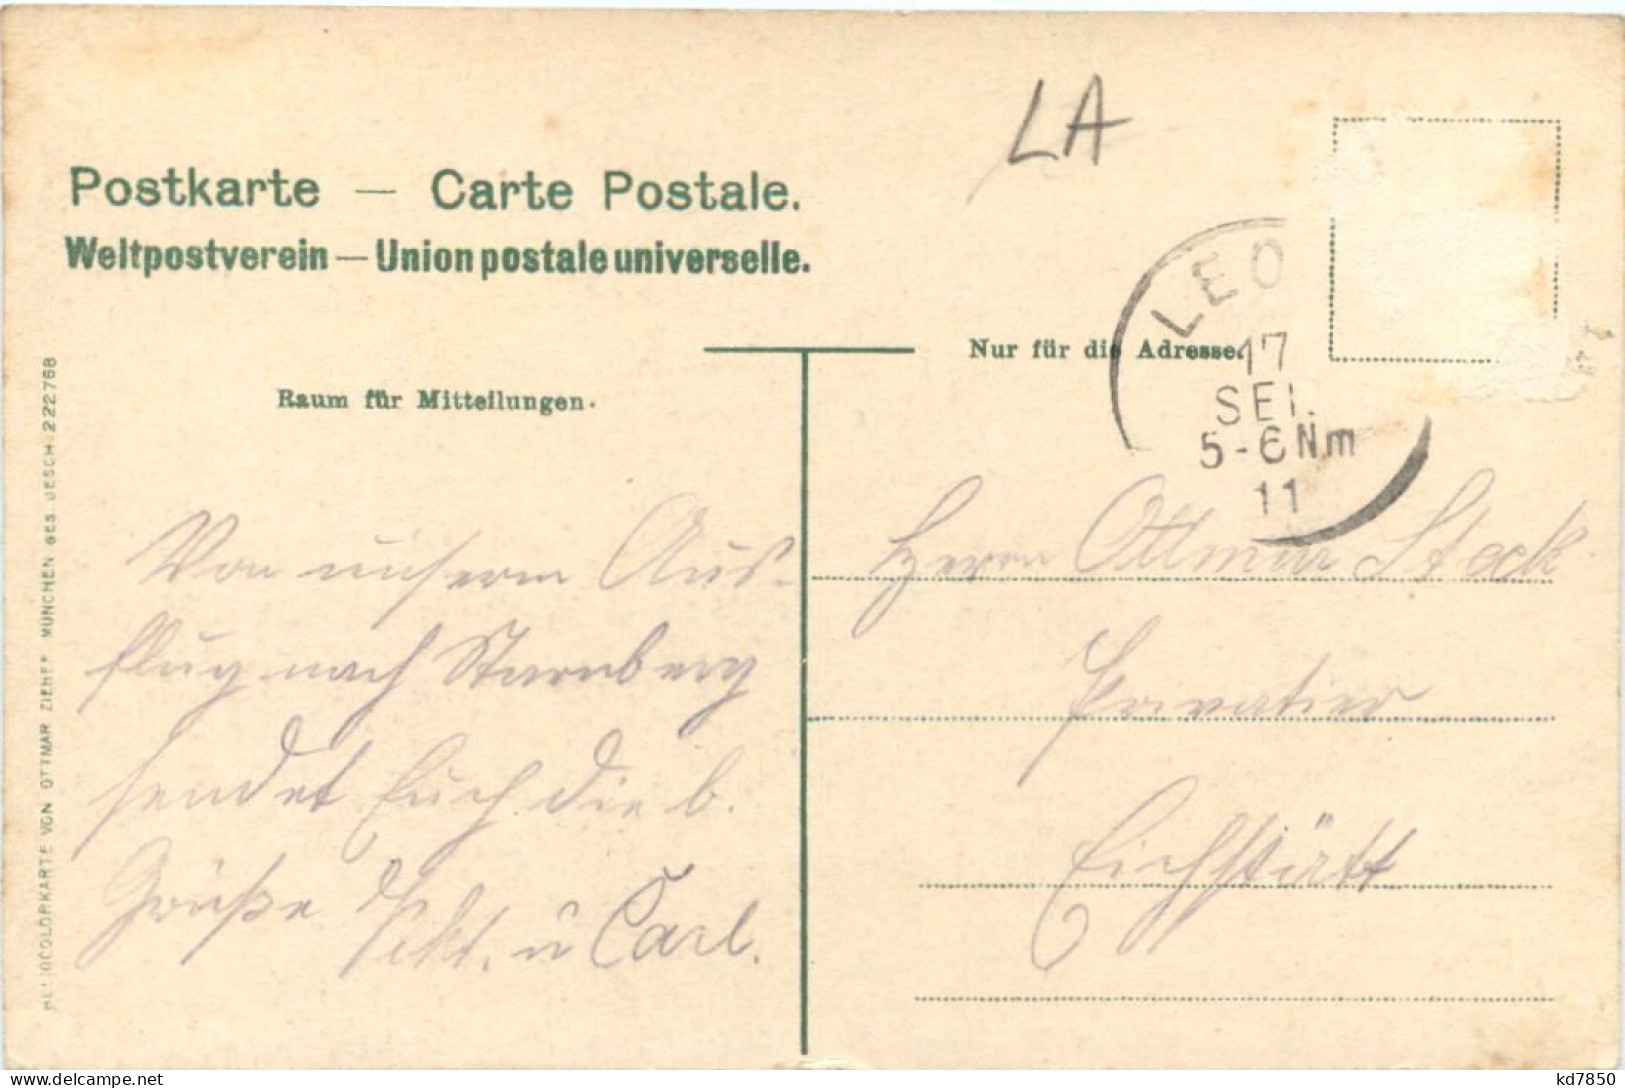 LA
Postkarte — Carte Postale.
Weltpostverein — Union postale universelle.
LEO
17
SEP.
5-6Nm
11
Nur für die Adresse.
Raum für Mitteilungen.
Von unserm Aus-
flug nach Starnberg
sendet Euch die b.
Grüße u Carl.
Herrn Ottmar Steck
Privatier
Eichstätt
HELIOCOLORKARTE VON OTTMAR ZIEHER MÜNCHEN GES GESCH. 222768
kd7850